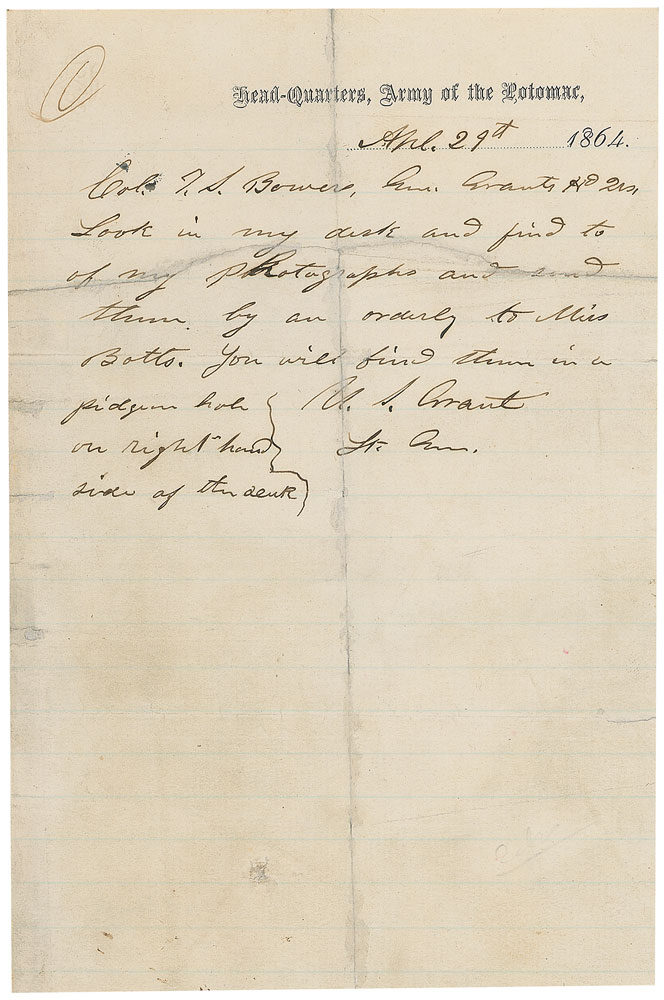 1
Head-Quarters, Army of the Potomac,
Apl. 29th 1864.
Col. T. S. Bowers, Gen. Grants Hd Qrs,
Look in my desk and find to
of my photographs and send
them by an orderly to Miss
Botts. You will find them in a
pidgeon hole
U. S. Grant
on right hand
Lt. Gen.
side of the desk